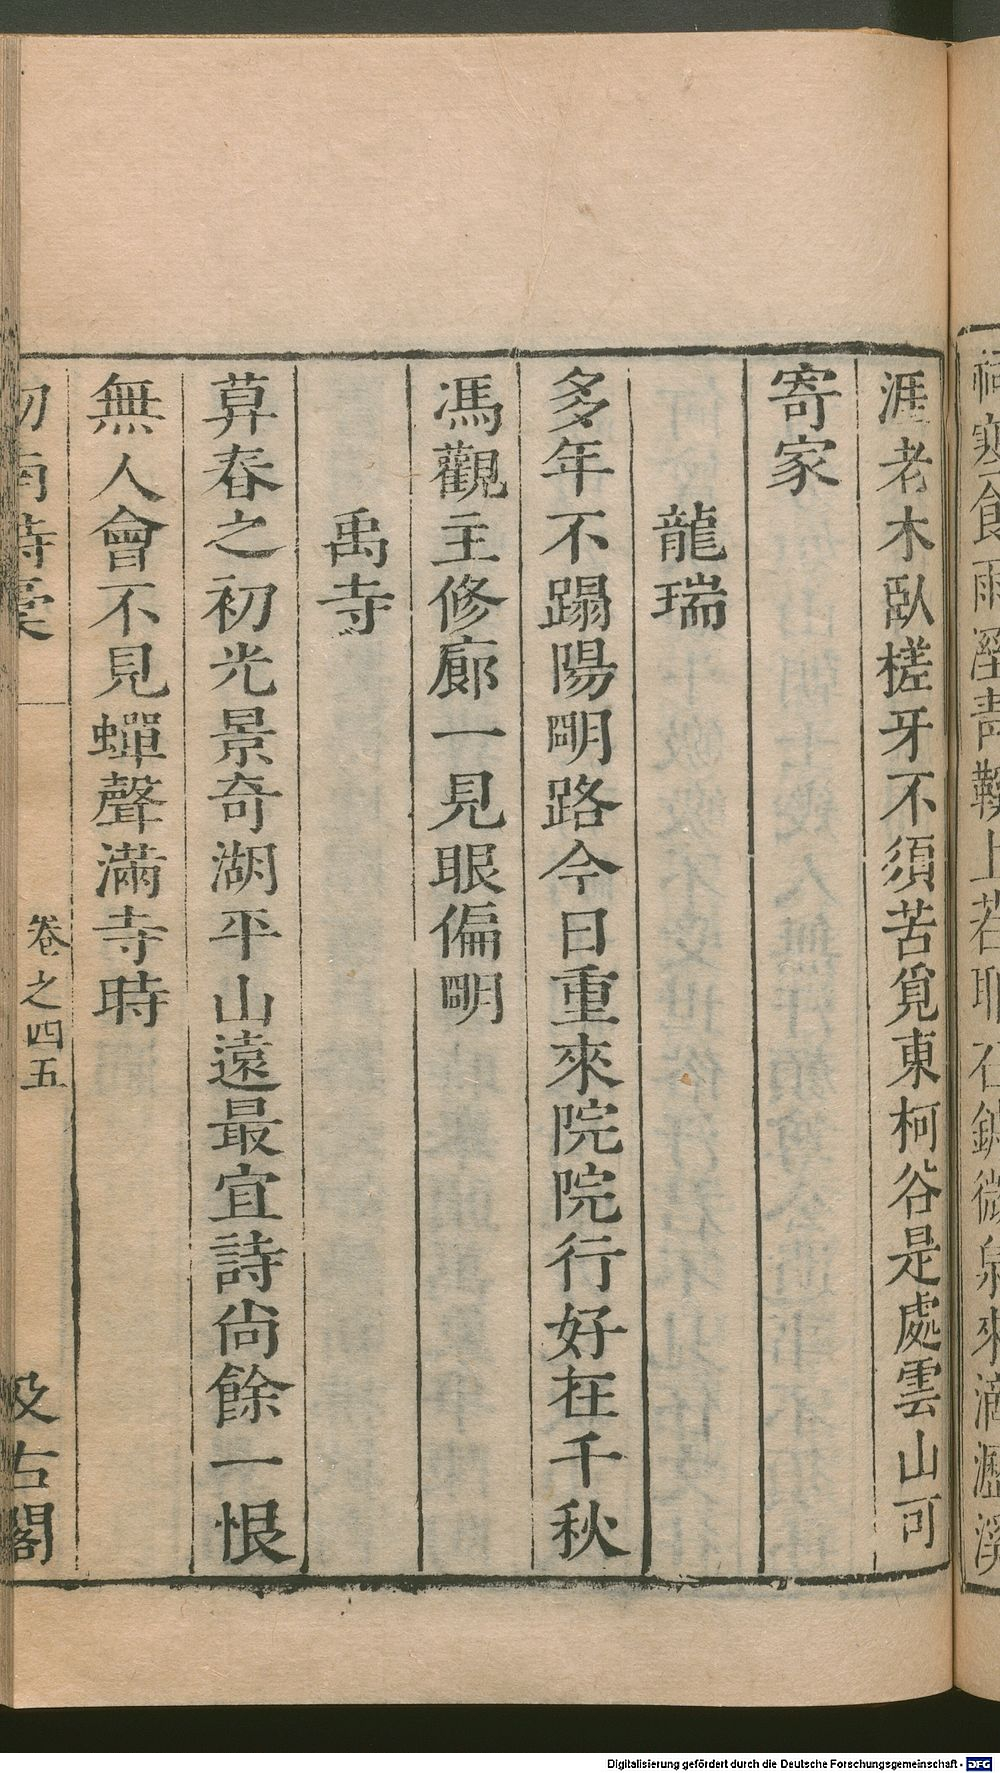 涯老木臥槎牙不須苦覓東柯谷是處雲山可
寄家
龍瑞
多年不蹋陽明路今日重來院院行好在千秋
馮觀主修廊一見眼偏明
禹寺
暮春之初光景奇湖平山遠最宜詩尙餘一恨
無人會不見蟬聲滿寺時
卷之四五
汲古閣
寒食雨溼靑鞵上若耶石鏬微泉來滴瀝溪
Digitalisierung gefördert durch die Deutsche Forschungsgemeinschaft - DFG